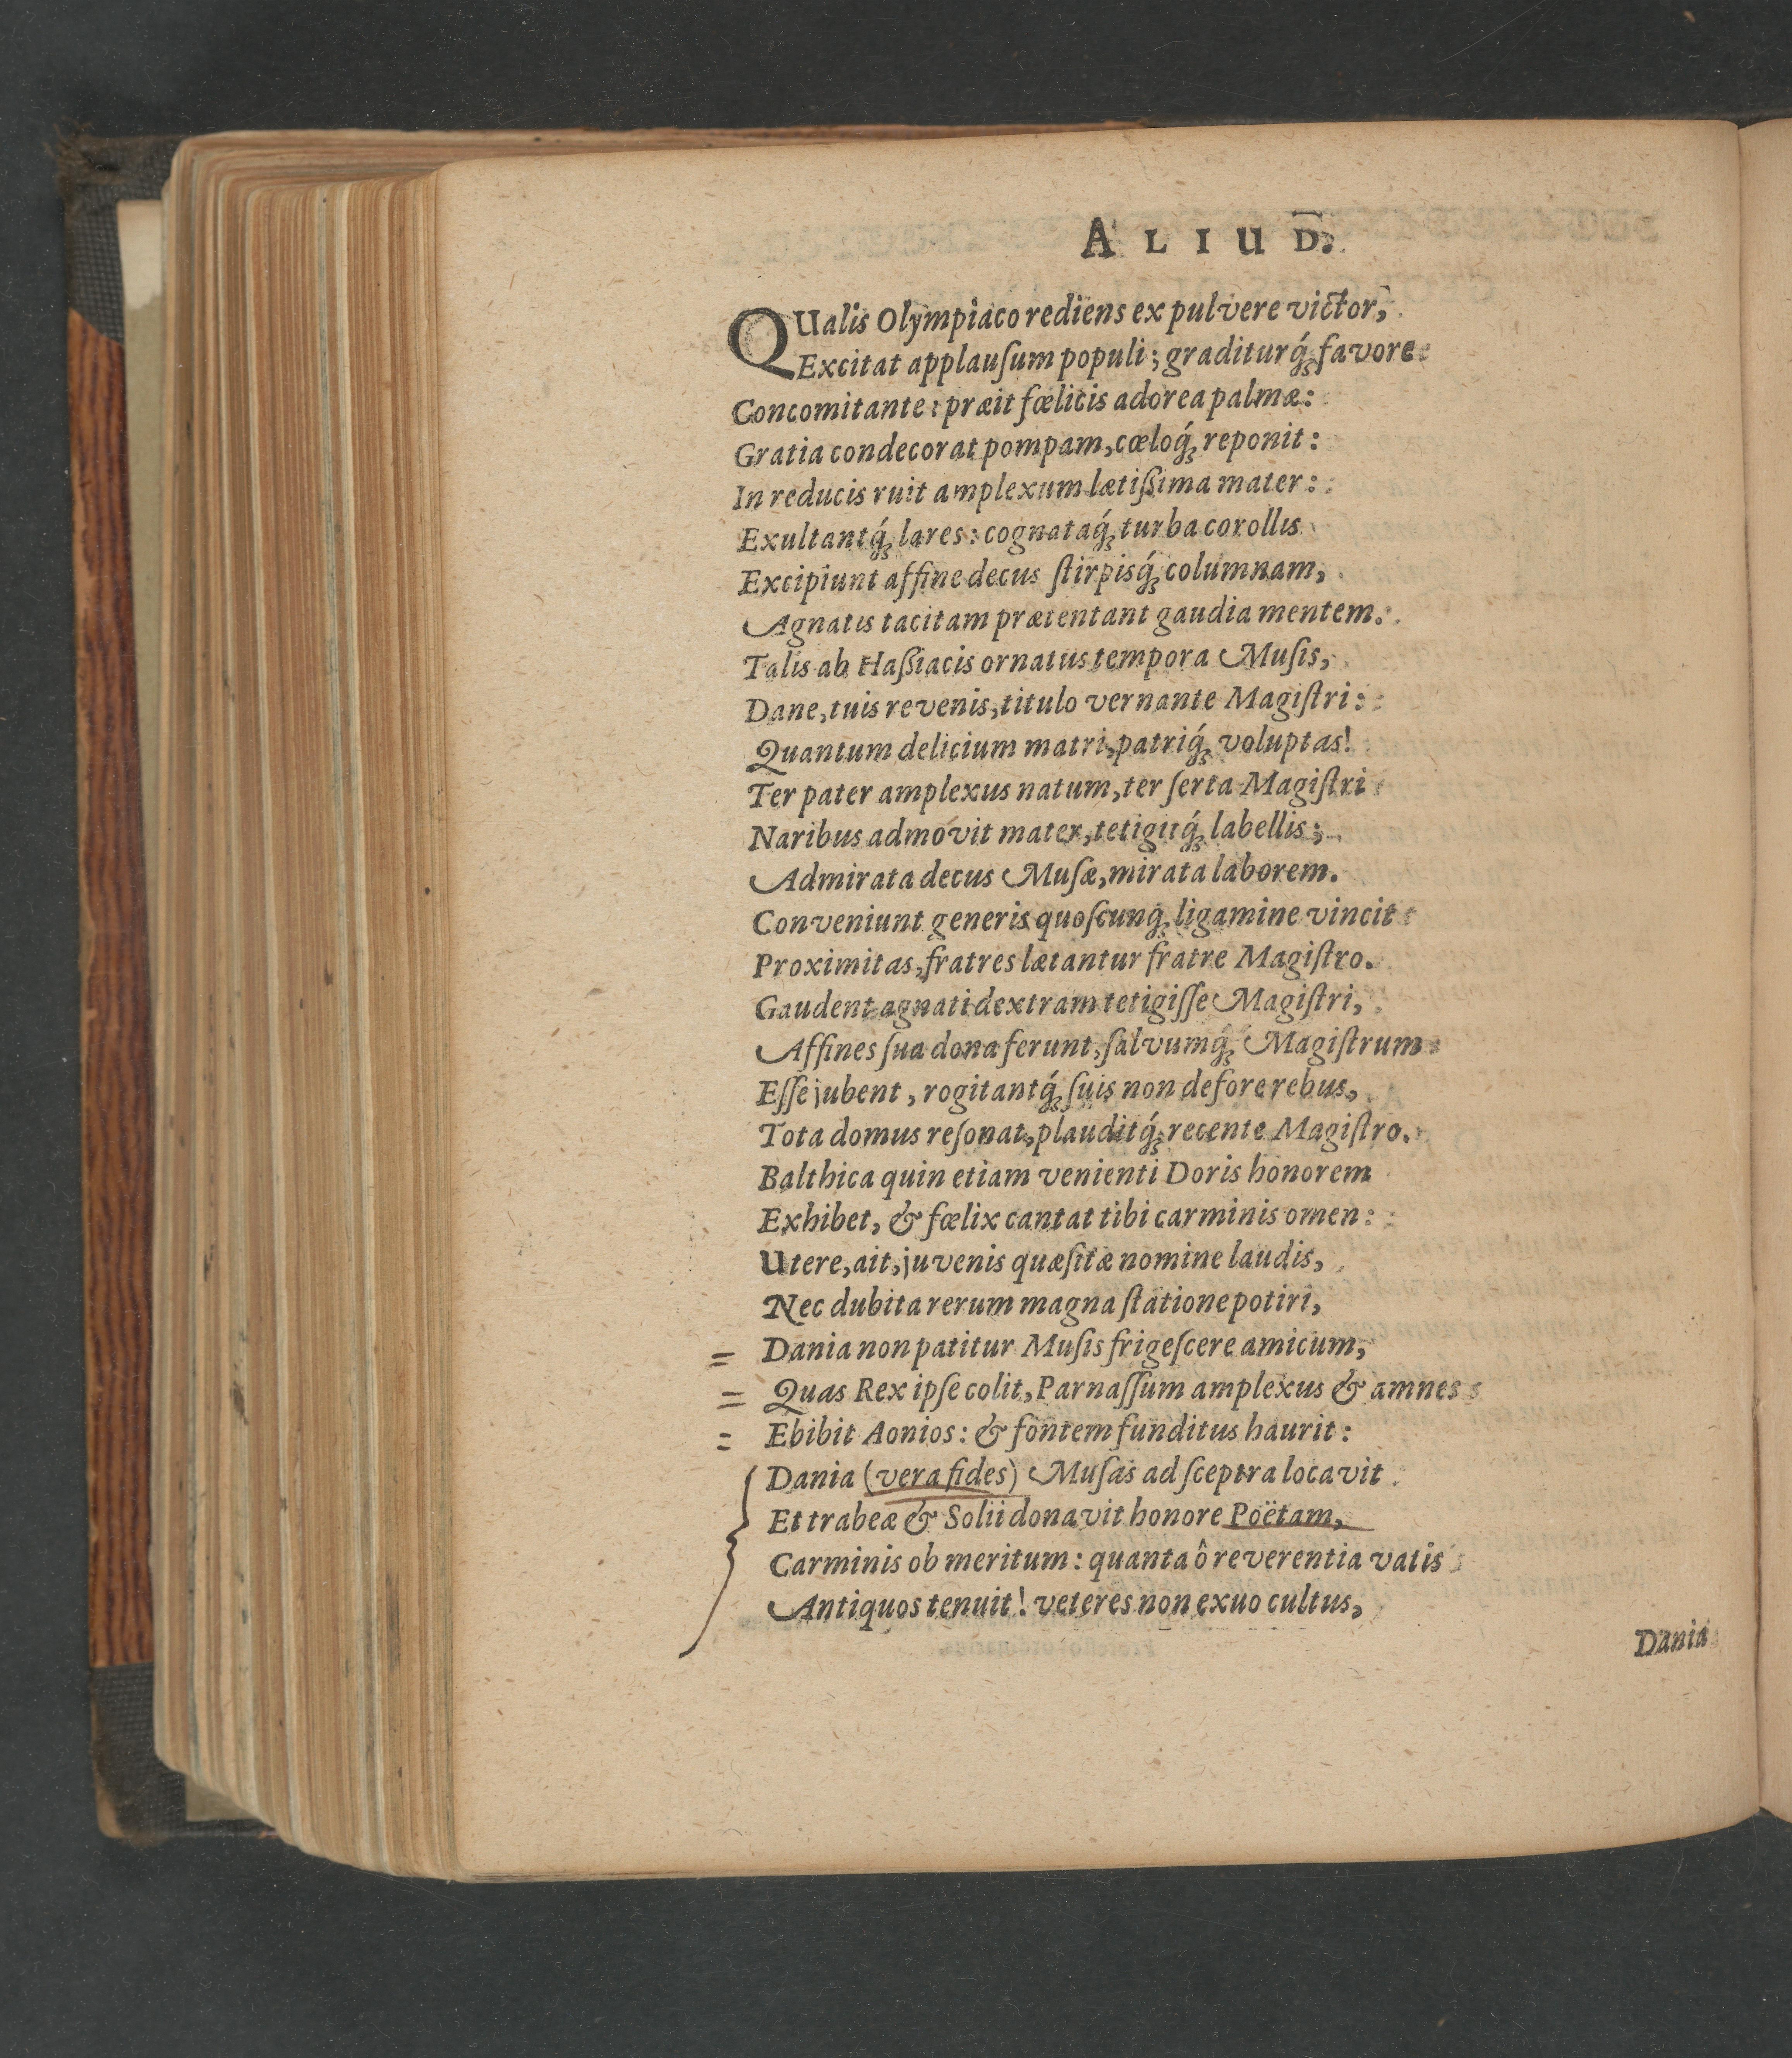 ALIUD.
QUalis Olympiaco rediens ex pulvere victor,
Excitat applauſum populi; graditurq́ꝫ favore
Concomitante: præit fœlicis adorea palmæ:
Gratia condecorat pompam, cœloq́ꝫ reponit:
In reducis ruit amplexum lætiſſima mater:
Exultantq́ꝫ lares: cognataq́ꝫ turba corollis
Excipiunt affine decus ſtirpisq́ꝫ columnam,
Agnatis tacitam prætentant gaudia mentem.
Talis ab Haſſiacis ornatus tempora Muſis,
Dane, tuis revenis, titulo vernante Magiſtri:
Quantum delicium matri, patriq́ꝫ voluptas!
Ter pater amplexus natum, ter ſerta Magiſtri
Naribus admovit mater, tetigitq́ꝫ labellis;
Admirata decus Muſæ, mirata laborem.
Conveniunt generis quoſcunq́ꝫ ligamine vincit
Proximitas, fratres lætantur fratre Magiſtro.
Gaudent agnati dextram tetigiſſe Magiſtri,
Affines ſua dona ferunt, ſalvumq́ꝫ Magiſtrum
Eſſe jubent, rogitantq́ꝫ ſuis non defore rebus,
Tota domus reſonat, plauditq́ꝫ recente Magiſtro.
Balthica quin etiam venienti Doris honorem
Exhibet, & fœlix cantat tibi carminis omen:
Utere, ait, juvenis quæſitæ nomine laudis,
Nec dubita rerum magna ſtatione potiri,
Dania non patitur Muſis frigeſcere amicum,
Quas Rex ipſe colit, Parnaſſum amplexus & amnes
Ebibit Aonios: & fontem funditus haurit:
Dania (vera fides) Muſas ad ſceptra locavit
Et trabeæ & Solii donavit honore Poëtam,
Carminis ob meritum: quanta ô reverentia vatis
Antiquos tenuit! veteres non exuo cultus,
Dania